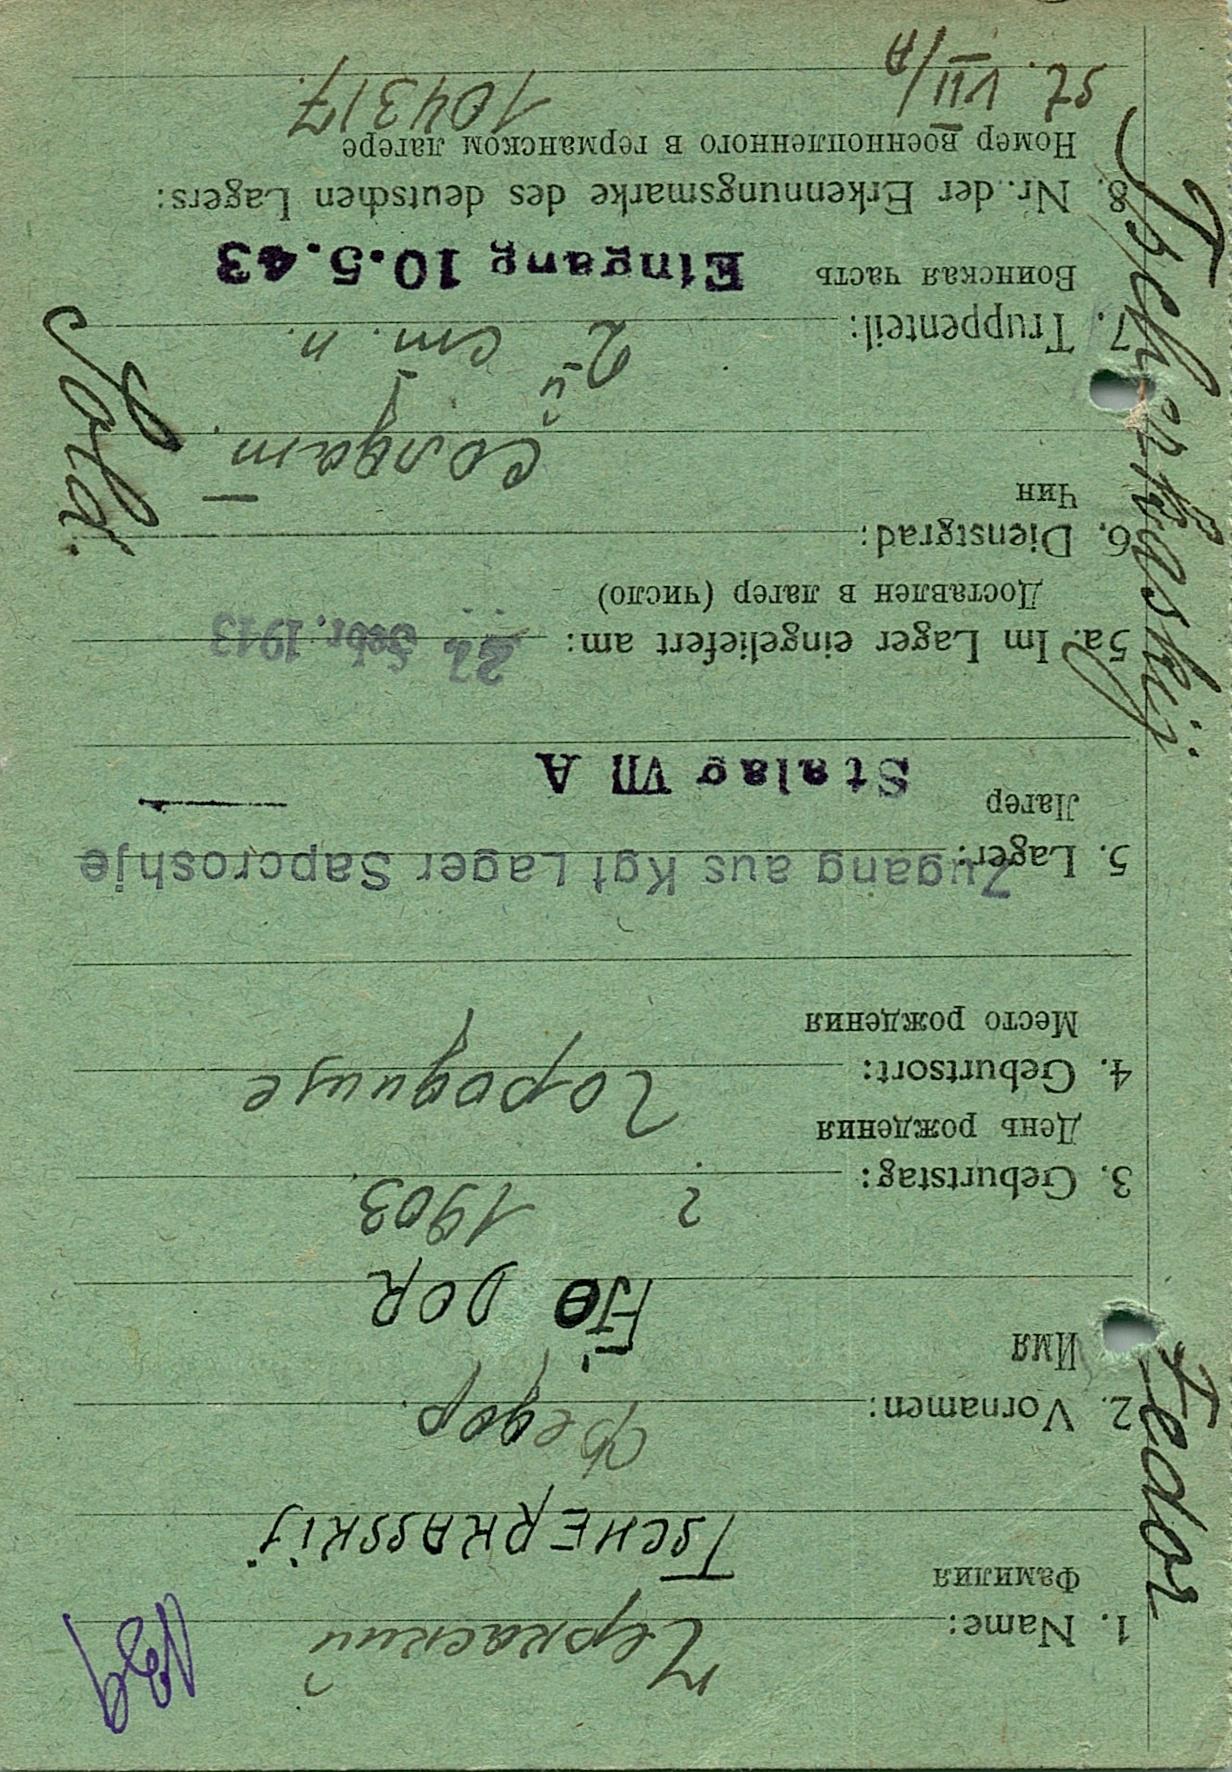 189
Черкаский
1. Name:
Фамилия
TSCHERKASSKIJ
Федор
2. Vornamen:
Имя
FJODOR
? 1903
3. Geburtstag:
День рождения
Городище
4. Geburtsort:
Место рождения
5. Lager:
Zugang aus Kgf Lager Saporoshje
Лагер
Stalag VII A
5a. Im Lager eingeliefert am: 22. Febr. 1943
Доставлен в лагер (число)
6. Dienstgrad:
Чин
солдат
Sold.
2й ст. п.
7. Truppenteil:
Воинская часть
Eingang 10.5.43
8. Nr. der Erkennungsmarke des deutschen Lagers:
Номер военнопленного в германском лагере
104317.
St. VII/A
Tscherkaskij
Fedor